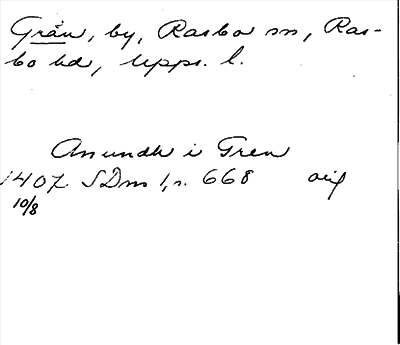 Grån, by, Rasbo sn, Ras-
bo hd, Upps. l.
Anundh i Gren
1407 SDns 1, s. 668 orig
10/8